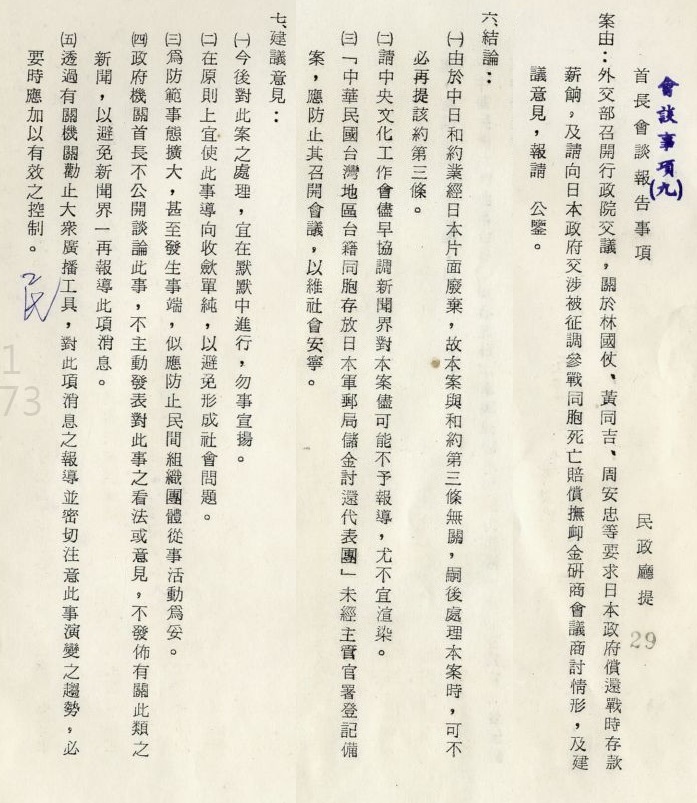 會談事項(九)
首長會談報告事項
民政廳提
29
案由：外交部召開行政院交議，關於林國仗、黃同吉、周安忠等要求日本政府償還戰時存款
薪餉，及請向日本政府交涉被征調參戰同胞死亡賠償撫卹金研商會議商討情形，及建
議意見，報請　公鑒。
六、結論：
㈠由於中日和約業經日本片面廢棄，故本案與和約第三條無關，嗣後處理本案時，可不
必再提該約第三條。
㈡請中央文化工作會儘早協調新聞界對本案儘可能不予報導，尤不宜渲染。
㈢「中華民國台灣地區台籍同胞存放日本軍郵局儲金討還代表團」未經主管官署登記備
案，應防止其召開會議，以維社會安寧。
七、建議意見：
㈠今後對此案之處理，宜在默默中進行，勿事宣揚。
㈡在原則上宜使此事導向收歛單純，以避免形成社會問題。
㈢爲防範事態擴大，甚至發生事端，似應防止民間組織團體從事活動爲妥。
㈣政府機關首長不公開談論此事，不主動發表對此事之看法或意見，不發佈有關此類之
新聞，以避免新聞界一再報導此項消息。
㈤透過有關機關勸止大衆廣播工具，對此項消息之報導並密切注意此事演變之趨勢，必
要時應加以有效之控制。
1
73